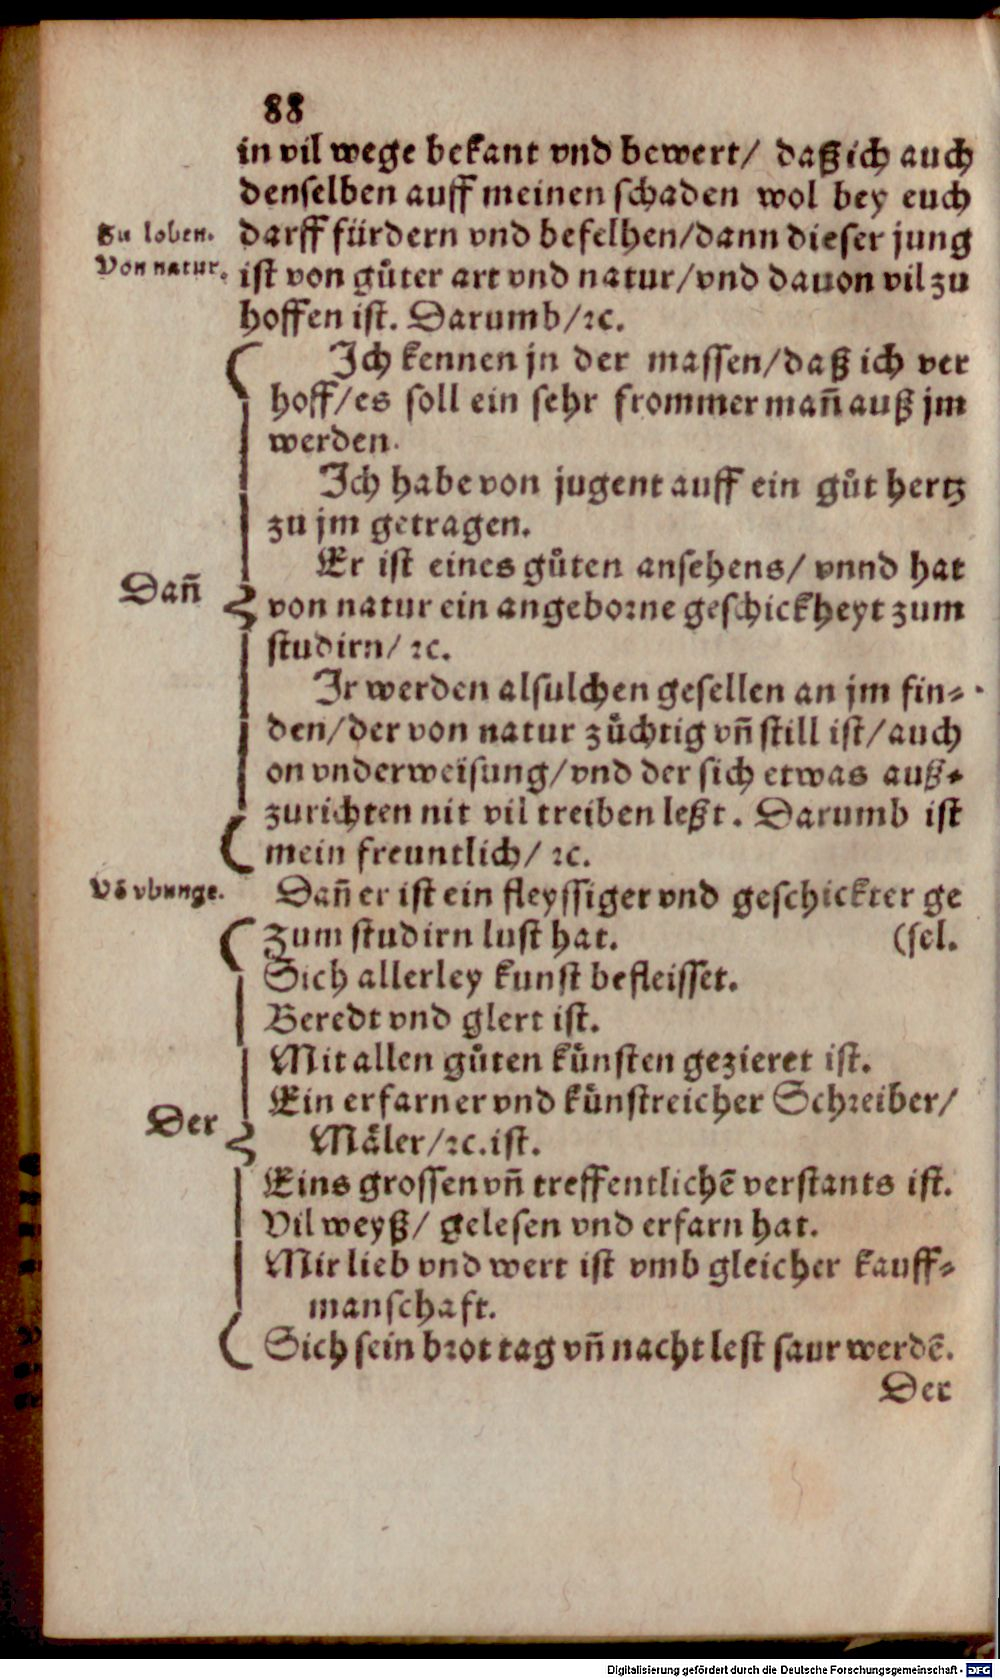 88
in vil wege bekant vnd bewert/ daß ich auch
denselben auff meinen schaden wol bey euch
Zu loben. darff fürdern vnd befelhen/dann dieser jung
Von natur. ist von gůter art vnd natur/vnd dauon vil zu
hoffen ist. Darumb/ꝛc.
Ich kennen jn der massen/daß ich ver
hoff/es soll ein sehr frommer mañ auß jm
werden.
Ich habe von jugent auff ein gůt hertz
zu jm getragen.
Er ist eines gůten ansehens/ vnnd hat
Dañ
von natur ein angeborne geschickheyt zum
studirn/ ꝛc.
Ir werden alsulchen gesellen an jm fin⸗
den/der von natur zůchtig vñ still ist/auch
on vnderweisung/vnd der sich etwas auß⸗
zurichten nit vil treiben leßt. Darumb ist
mein freuntlich/ ꝛc.
Võ vbunge. Dañ er ist ein fleyssiger vnd geschickter ge
zum studirn lust hat. (sel.
Sich allerley kunst befleisset.
Beredt vnd glert ist.
Mit allen gůten kůnsten gezieret ist.
Ein erfarner vnd kůnstreicher Schreiber/
Der
Mäler/ꝛc.ist.
Eins grossen vñ treffentlichẽ verstants ist.
Vil weyß/ gelesen vnd erfarn hat.
Mir lieb vnd wert ist vmb gleicher kauff⸗
manschaft.
Sich sein brot tag vñ nacht lest saur werdẽ.
Der
Digitalisierung gefördert durch die Deutsche Forschungsgemeinschaft - DFG